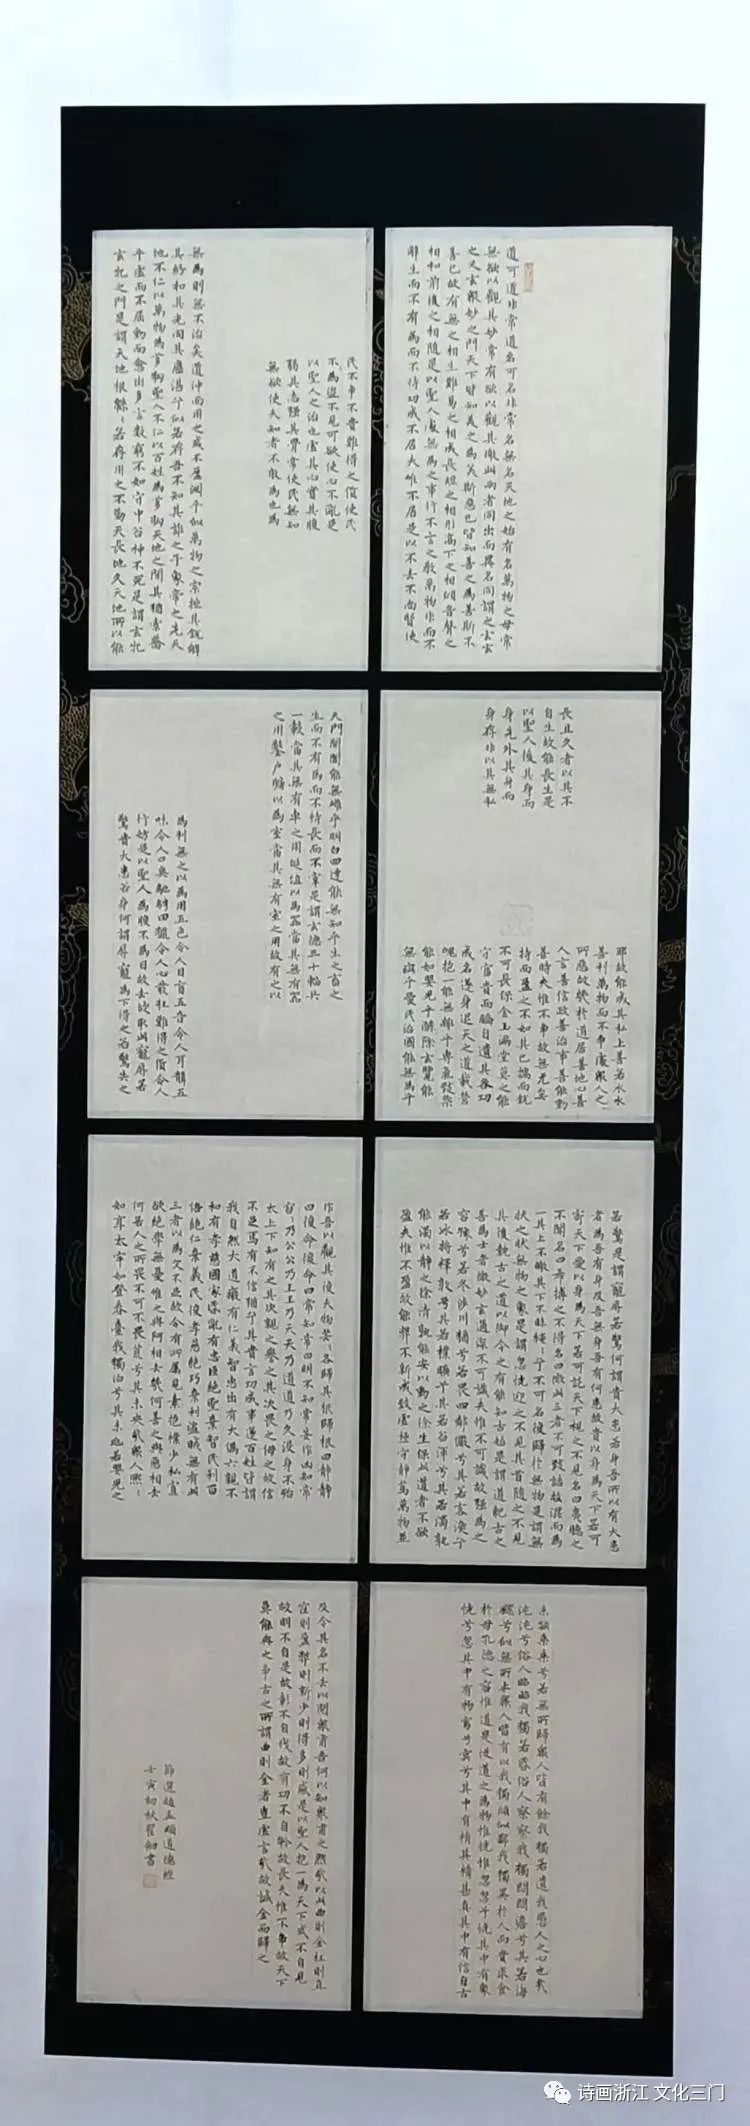 道可道非常道名可名非常名無名天地之始有名萬物之母常
無欲以觀其妙常有欲以觀其徼此兩者同出而異名同謂之玄玄
之又玄衆妙之門天下皆知美之為美斯惡已皆知善之為善斯不
善已故有無之相生難易之相成長短之相形高下之相傾音聲之
相和前後之相隨是以聖人處無為之事行不言之教萬物作而不
辭生而不有為而不恃功成不居夫惟不居是以不去不尚賢使
民不爭不貴難得之貨使民
不為盜不見可欲使心不亂是
以聖人之治也虛其心實其腹
弱其志强其骨常使民無知
無欲使夫知者不敢為也為
無為則無不治矣道沖而用之或不盈淵乎似萬物之宗挫其銳解
其紛和其光同其塵湛兮似若存吾不知其誰之子象帝之先天
地不仁以萬物為芻狗聖人不仁以百姓為芻狗天地之間其猶橐籥
乎虛而不屈動而愈出多言數窮不如守中谷神不死是謂玄牝
玄牝之門是謂天地根緜緜若存用之不勤天長地久天地所以能
長且久者以其不
自生故能長生是
以聖人後其身而
身先外其身而
身存非以其無私
耶故能成其私上善若水水
善利萬物而不爭處衆人之
所惡故幾於道居善地心善
人言善信政善治事善能動
善時夫惟不爭故無尤矣
持而盈之不如其已揣而銳
不可長保金玉滿堂莫之能
守富貴而驕自遺其咎功
成名遂身退天之道載營
魄抱一能無離乎專氣致柔
能如嬰兒乎滌除玄覽能
無疵乎愛民治國能無為乎
天門開闔能無雌乎明白四達能無知乎生之畜之
生而不有為而不恃長而不宰是謂玄德三十輻共
一轂當其無有車之用埏埴以為器當其無有器
之用鑿户牖以為室當其無有室之用故有之以
為利無之以為用五色令人目盲五音令人耳聾五
味令人口爽馳騁田獵令人心發狂難得之貨令人
行妨是以聖人為腹不為目故去彼取此寵辱若
驚貴大患若身何謂寵辱寵為下得之若驚失之
若驚是謂寵辱若驚何謂貴大患若身吾所以有大患
者為吾有身及吾無身吾有何患故貴以身為天下若可
寄天下愛以身為天下若可託天下視之不見名曰夷聽之
不聞名曰希搏之不得名曰微此三者不可致詰故混而為
一其上不皦其下不昧繩繩兮不可名復歸於無物是謂無
狀之狀無物之象是謂忽恍迎之不見其首隨之不見
其後執古之道以御今之有能知古始是謂道紀古之
善為士者微妙玄通深不可識夫惟不可識故强為之
容豫兮若冬涉川猶兮若畏四鄰儼兮其若客渙兮
若冰將釋敦兮其若樸曠兮其若谷渾兮其若濁孰
能濁以靜之徐清孰能安以動之徐生保此道者不欲
盈夫惟不盈故能弊不新成致虛極守靜篤萬物並
作吾以觀其復夫物芸芸各歸其根歸根曰靜靜
曰復命復命曰常知常曰明不知常妄作凶知常
容容乃公公乃王王乃天天乃道道乃久沒身不殆
太上下知有之其次親之譽之其次畏之侮之故信
不足焉有不信猶兮其貴言功成事遂百姓皆謂
我自然大道廢有仁義智惠出有大偽六親不
和有孝慈國家昏亂有忠臣絕聖棄智民利百
倍絕仁棄義民復孝慈絕巧棄利盜賊無有此
三者以為文不足故令有所屬見素抱樸少私寡
欲絕學無憂唯之與阿相去幾何善之與惡相去
何若人之所畏不可不畏荒兮其未央哉衆人熙熙
如享太牢如登春臺我獨泊兮其未兆若嬰兒之
未孩乘乘兮若無所歸衆人皆有餘我獨若遺我愚人之心也哉
沌沌兮俗人昭昭我獨若昏俗人察察我獨悶悶澹兮其若海
飂兮似無所止衆人皆有以我獨頑似鄙我獨異於人而貴求食
於母孔德之容惟道是從道之為物惟恍惟忽忽兮恍其中有象
恍兮忽其中有物窈兮冥兮其中有精其精甚真其中有信自古
及今其名不去以閱衆甫吾何以知衆甫之然哉以此曲則全枉則直
窪則盈弊則新少則得多則惑是以聖人抱一為天下式不自見
故明不自是故彰不自伐故有功不自矜故長夫惟不爭故天下
莫能與之爭古之所謂曲則全者豈虛言哉故誠全而歸之
節選趙孟頫道德經
壬寅初秋翟 書
诗画浙江 文化三门